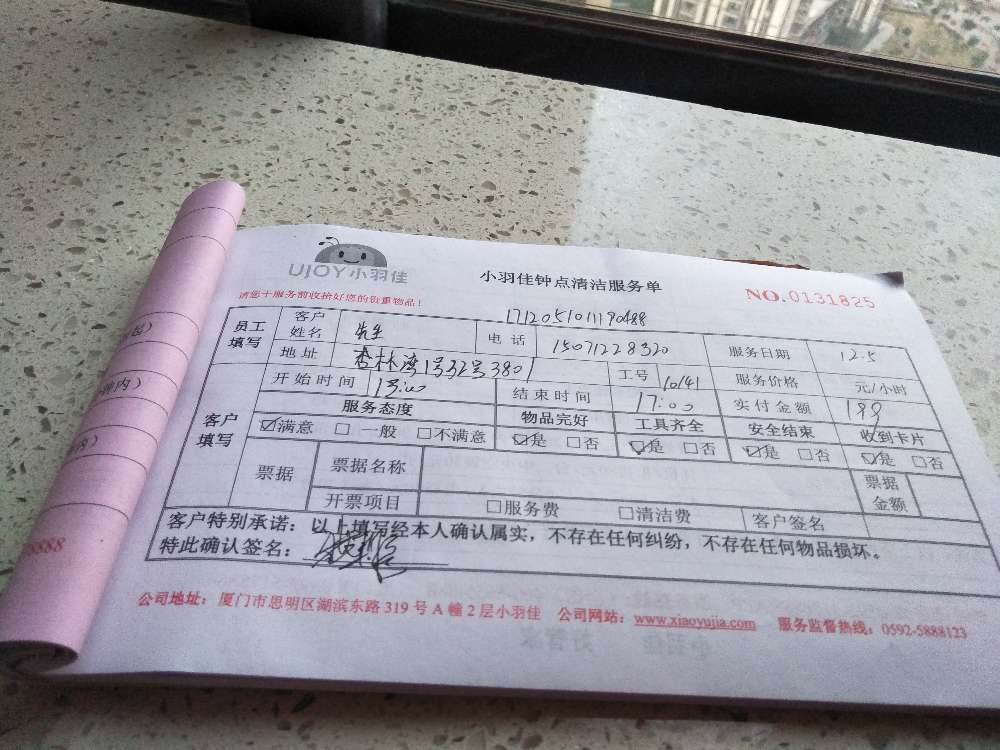 UJOY小羽佳
小羽佳钟点清洁服务单
NO.0131825
请您于服务前收拾好您的贵重物品!
1712051011190488
员工填写 客户姓名 先生 电话 15071228320 服务日期 12.5
地址 杏林湾1号32号3801 工号 10141 服务价格 元/小时
客户填写 开始时间 13:00 结束时间 17:00 实付金额 199
服务态度 物品完好 工具齐全 安全结束 收到卡片
☑满意 □一般 □不满意 ☑是 □否 ☑是 □否 ☑是 □否 ☑是 □否
票据 票据名称 票据金额
开票项目 □服务费 □清洁费 客户签名
客户特别承诺:以上填写经本人确认属实,不存在任何纠纷,不存在任何物品损坏。
特此确认签名:
公司地址:厦门市思明区湖滨东路319号A幢2层小羽佳 公司网站:www.xiaoyujia.com 服务监督热线:0592-5888123